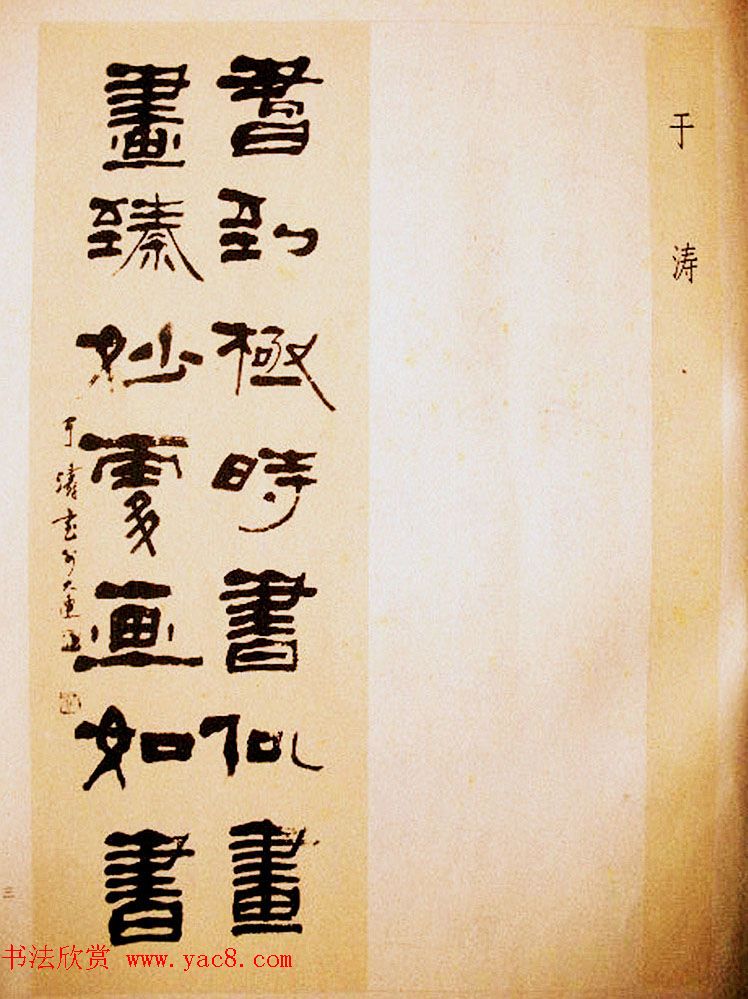 于涛
書到極時書似畫
畫臻妙處画如書
于濤书於大連
三
书法欣赏 www.yac8.com